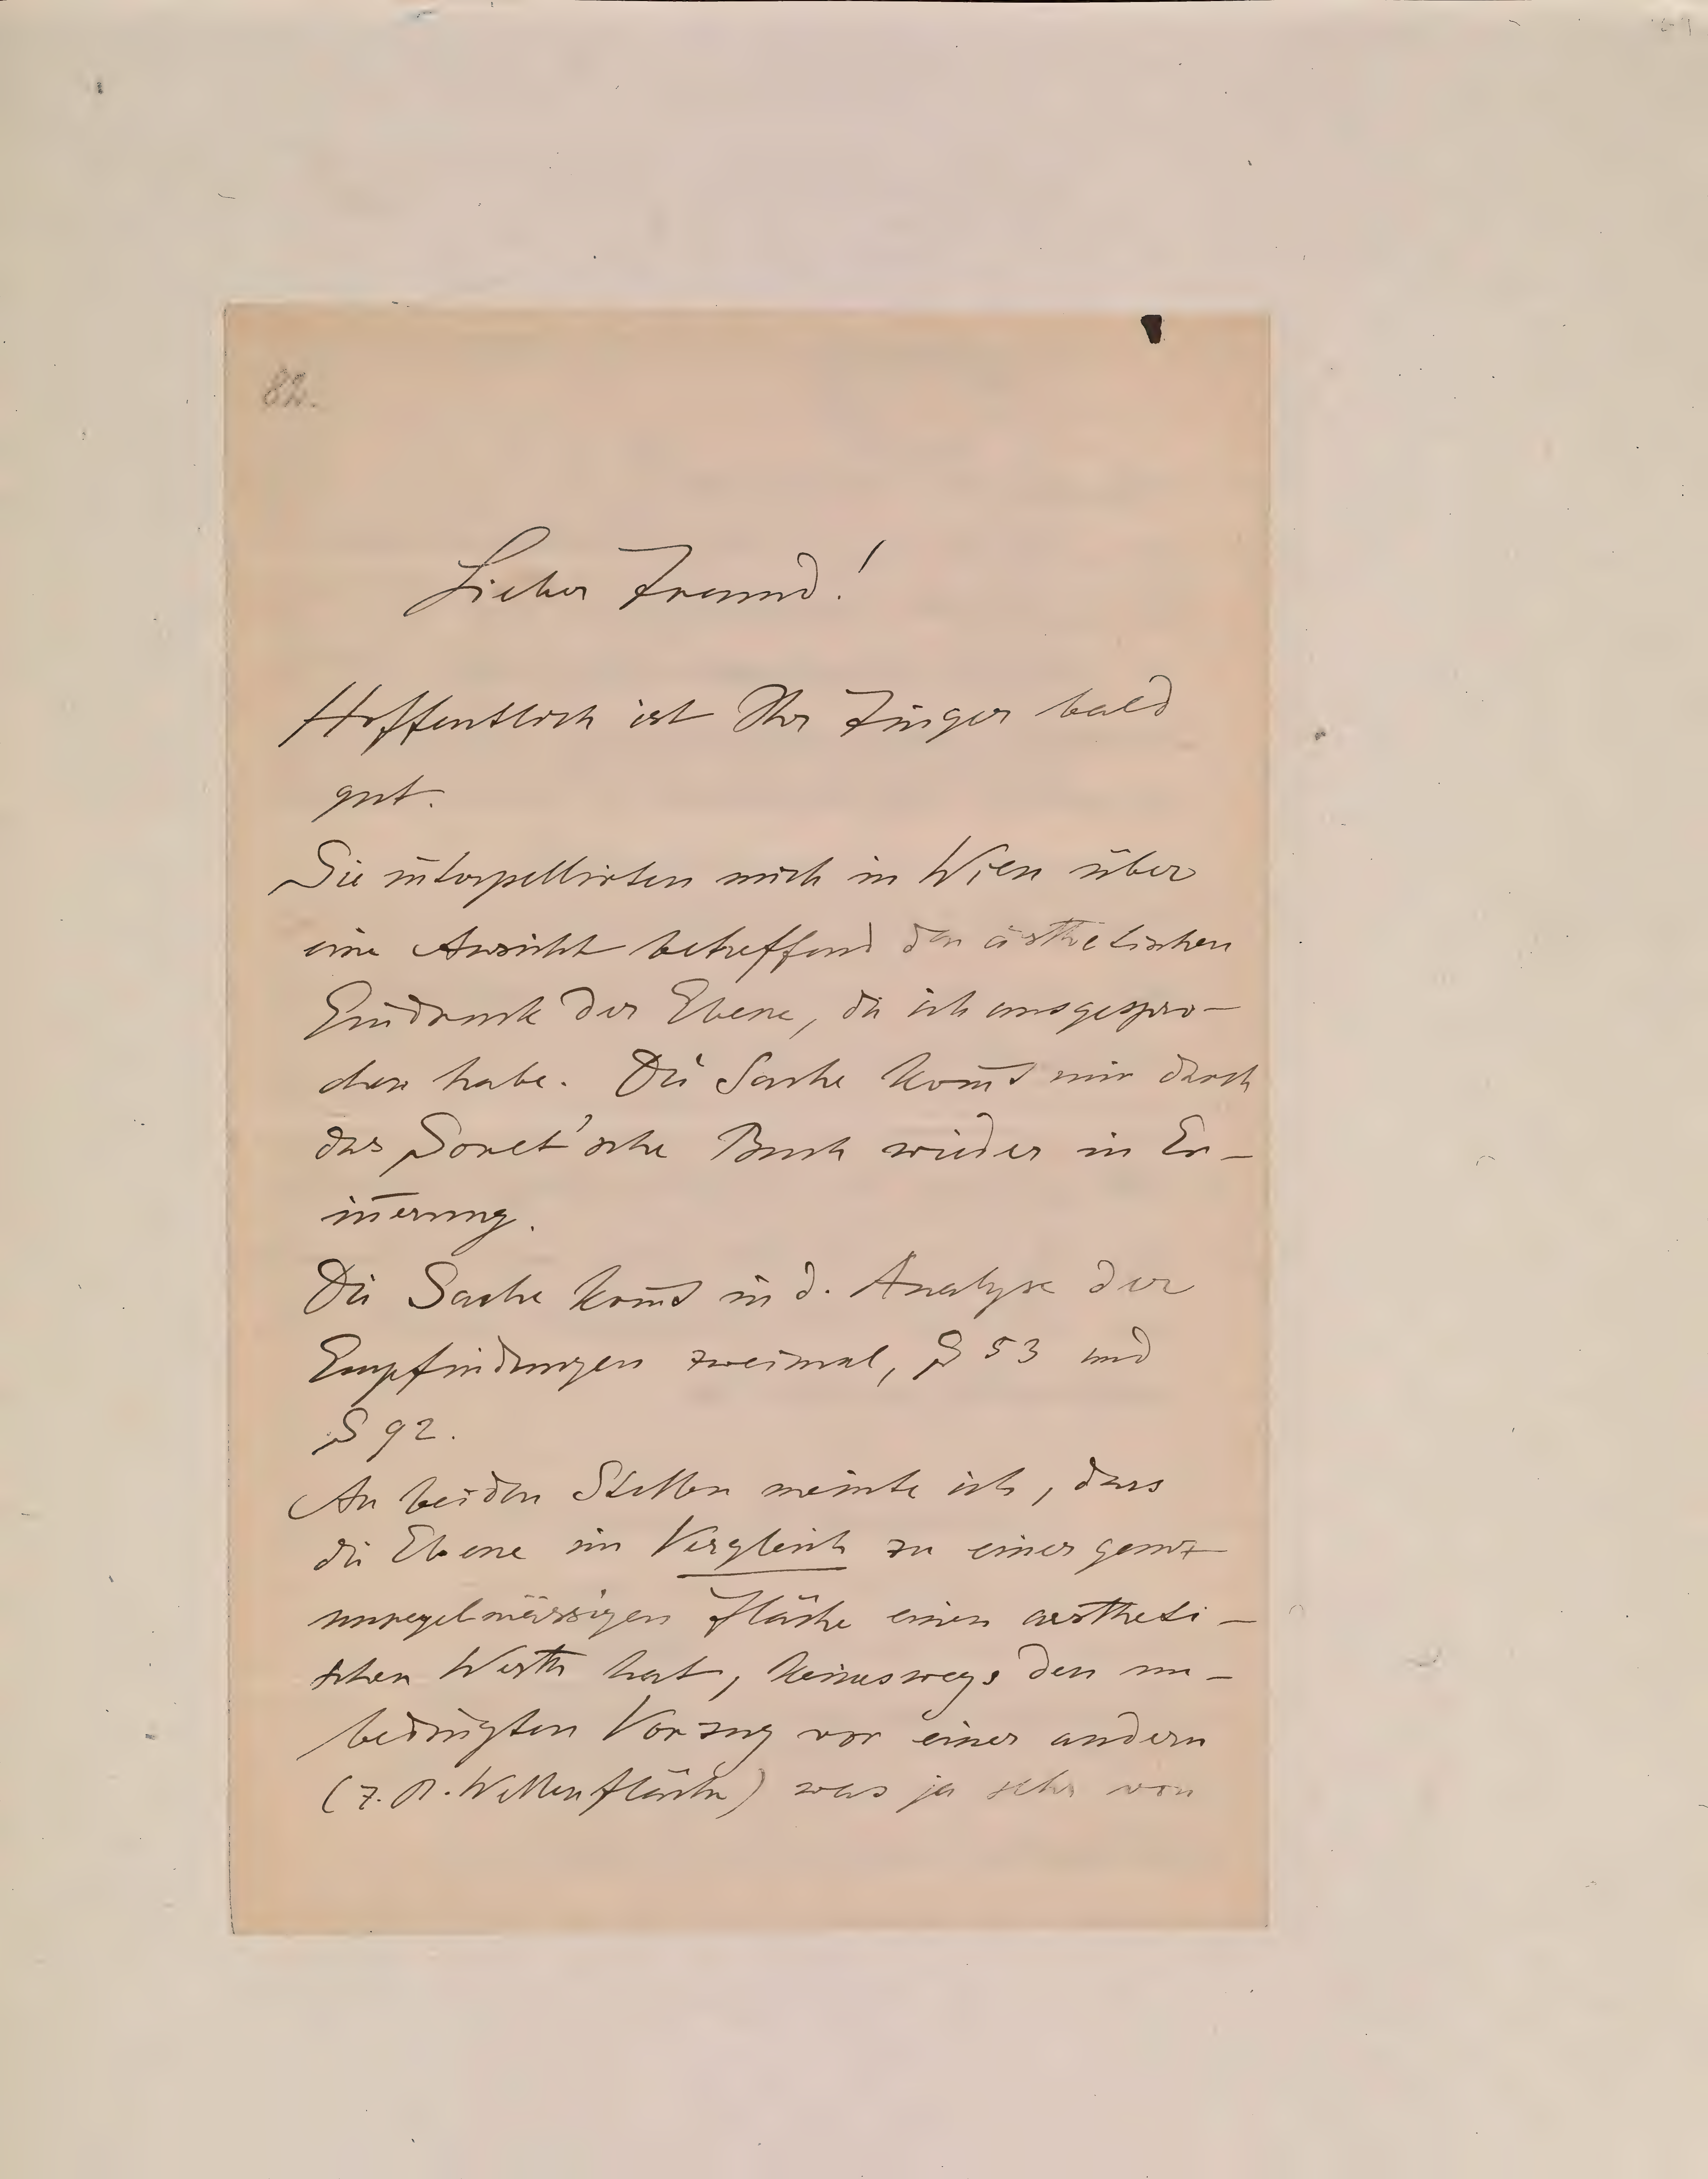 82.
Lieber Freund!
Hoffentlich ist Ihr Finger bald
gut.
Sie interpellirten mich in Wien über
eine Ansicht betreffend den ästhetischen
Eindruck der Ebene, die ich ausgespro-
chen habe. Die Sache kom̄t mir durch
das Soret'sche Buch wieder in Er-
in̄erung.
Die Sache kom̄t in d. Analyse der
Empfindungen zweimal, § 53 und
§ 92.
An beiden Stellen meinte ich, dass
die Ebene im Vergleich zu einer ganz
unregelmässigen Fläche einen aestheti-
schen Werth hat, keineswegs den un-
bedingten Vorzug vor einer andern
(z. B. Wellenfläche) was ja sehr von